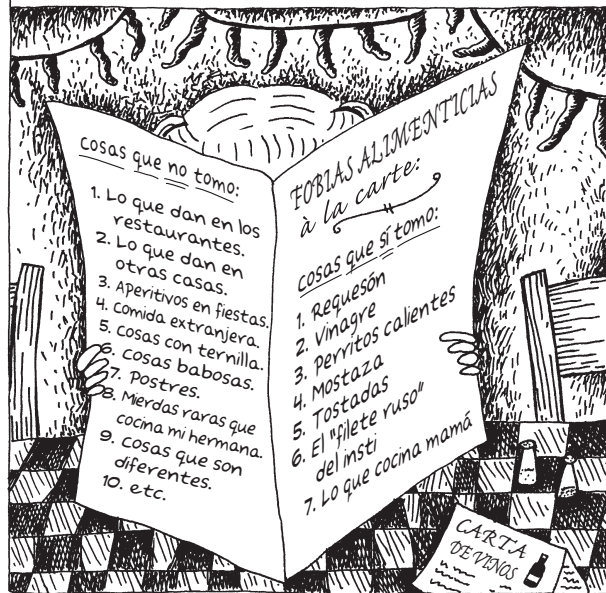 cosas que no tomo:
1. Lo que dan en los
restaurantes.
2. Lo que dan en
otras casas.
3. Aperitivos en fiestas.
4. Comida extranjera.
5. Cosas con ternilla.
6. Cosas babosas.
7. Postres.
8. Mierdas raras que
cocina mi hermana.
9. Cosas que son
diferentes.
10. etc.
FOBIAS ALIMENTICIAS
à la carte:
cosas que sí tomo:
1. Requesón
2. Vinagre
3. Perritos calientes
4. Mostaza
5. Tostadas
6. El "filete ruso"
del insti
7. Lo que cocina mamá
CARTA
DE VINOS